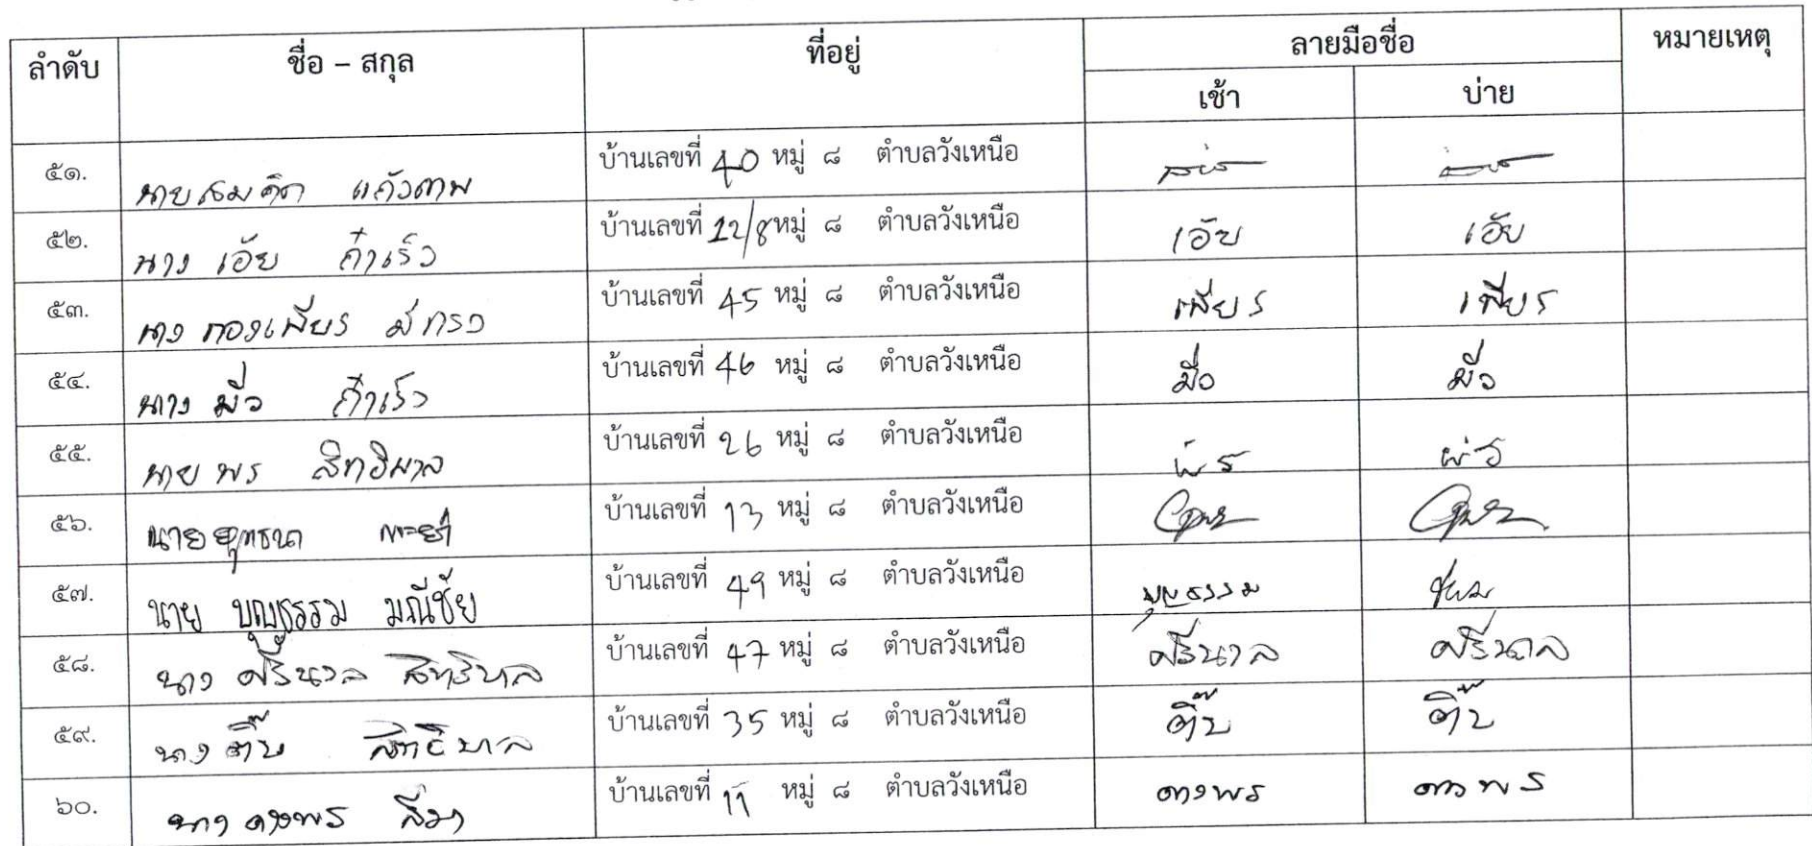 ลำดับ ชื่อ – สกุล ที่อยู่ ลายมือชื่อ หมายเหตุ
เช้า บ่าย
๕๑. นายสมคิด แก้วเทพ บ้านเลขที่ 40 หมู่ ๘ ตำบลวังเหนือ
๕๒. นาง เอ้ย คำเร็ว บ้านเลขที่ 12/8 หมู่ ๘ ตำบลวังเหนือ เอ้ย เอ้ย
๕๓. นาง ทองเพียร บ้านเลขที่ 45 หมู่ ๘ ตำบลวังเหนือ เพียร เพียร
๕๔. นาง มื่อ คำเร็ว บ้านเลขที่ 46 หมู่ ๘ ตำบลวังเหนือ
๕๕. นาย พร สิทธิบาล บ้านเลขที่ 26 หมู่ ๘ ตำบลวังเหนือ
๕๖. นาย ยุทธนา บ้านเลขที่ 13 หมู่ ๘ ตำบลวังเหนือ
๕๗. นาย บุญธรรม มณีชัย บ้านเลขที่ 49 หมู่ ๘ ตำบลวังเหนือ บุญธรรม
๕๘. นาง ศรีนวล สิทธิบาล บ้านเลขที่ 47 หมู่ ๘ ตำบลวังเหนือ ศรีนวล ศรีนวล
๕๙. นาง ติ๊บ สิทธิบาล บ้านเลขที่ 35 หมู่ ๘ ตำบลวังเหนือ ติ๊บ ติ๊บ
๖๐. นาง ดวงพร สีมา บ้านเลขที่ 11 หมู่ ๘ ตำบลวังเหนือ ดวงพร ดวงพร